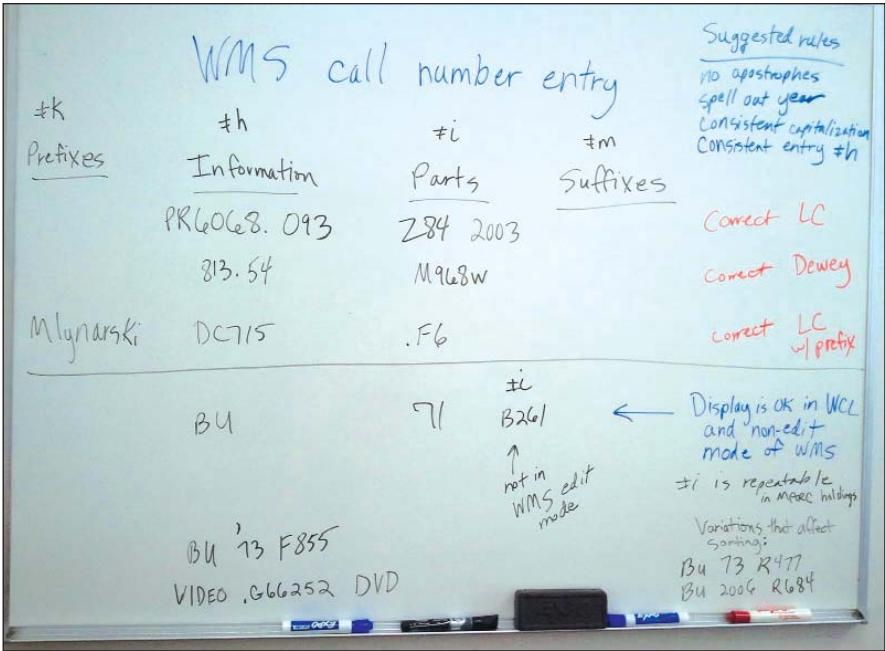 WMS call number entry
Suggested rules
no apostrophes
spell out year
Consistent capitalization
Consistent entry ‡h
‡k
Prefixes
‡h
Information
‡i
Parts
‡m
Suffixes
PR6068. 093 Z84 2003 Correct LC
813.54 M968W Correct Dewey
Mlynarski DC715 .F6 Correct LC
w/ prefix
‡i
BU 71 B261 ← Display is OK in WCL
and non-edit
mode of WMS
↑
not in
WMS edit
mode
‡i is repeatable
in MARC holdings
BU '73 F855
VIDEO .G66252 DVD
Variations that affect
sorting:
Bu 73 R477
Bu 2006 R684
EXPO